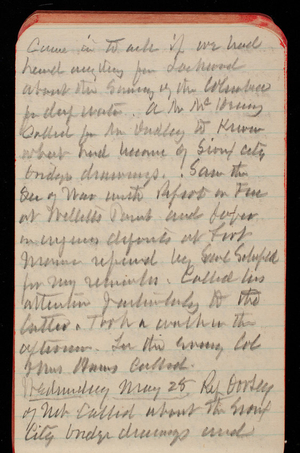 Came in to ask if we had
heard anything from Lockwood
about the survey of the Columbia
for deep water. A Mr Mc
Called for Mr Dudley to know
what had become of Sioux City
bridge drawings. Saw the
Sec of War with Report on Fire
at Willetts Point and papers
on engineer deposits at Fort
Monroe required by
for my reminder. Called his
attention particularly to the
latter. Took a walk in the
afternoon. In the evening Col
John called.
Wednesday May 28 Rep Dorsey
of Neb called about the Sioux
City bridge drawings and